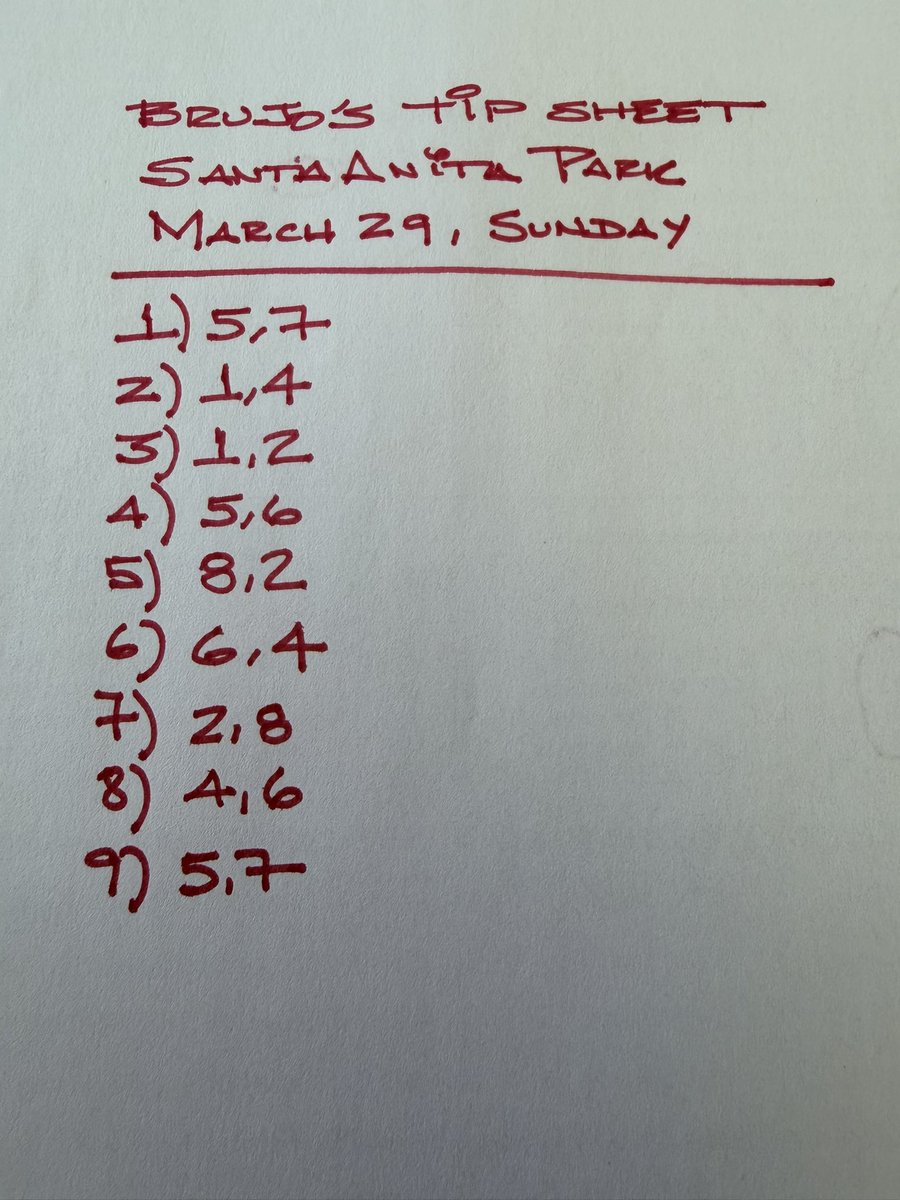 BRUJO'S TIP SHEET
SANTA ANITA PARK
MARCH 29, SUNDAY
1) 5,7
2) 1,4
3) 1,2
4) 5,6
5) 8,2
6) 6,4
7) 2,8
8) 4,6
9) 5,7